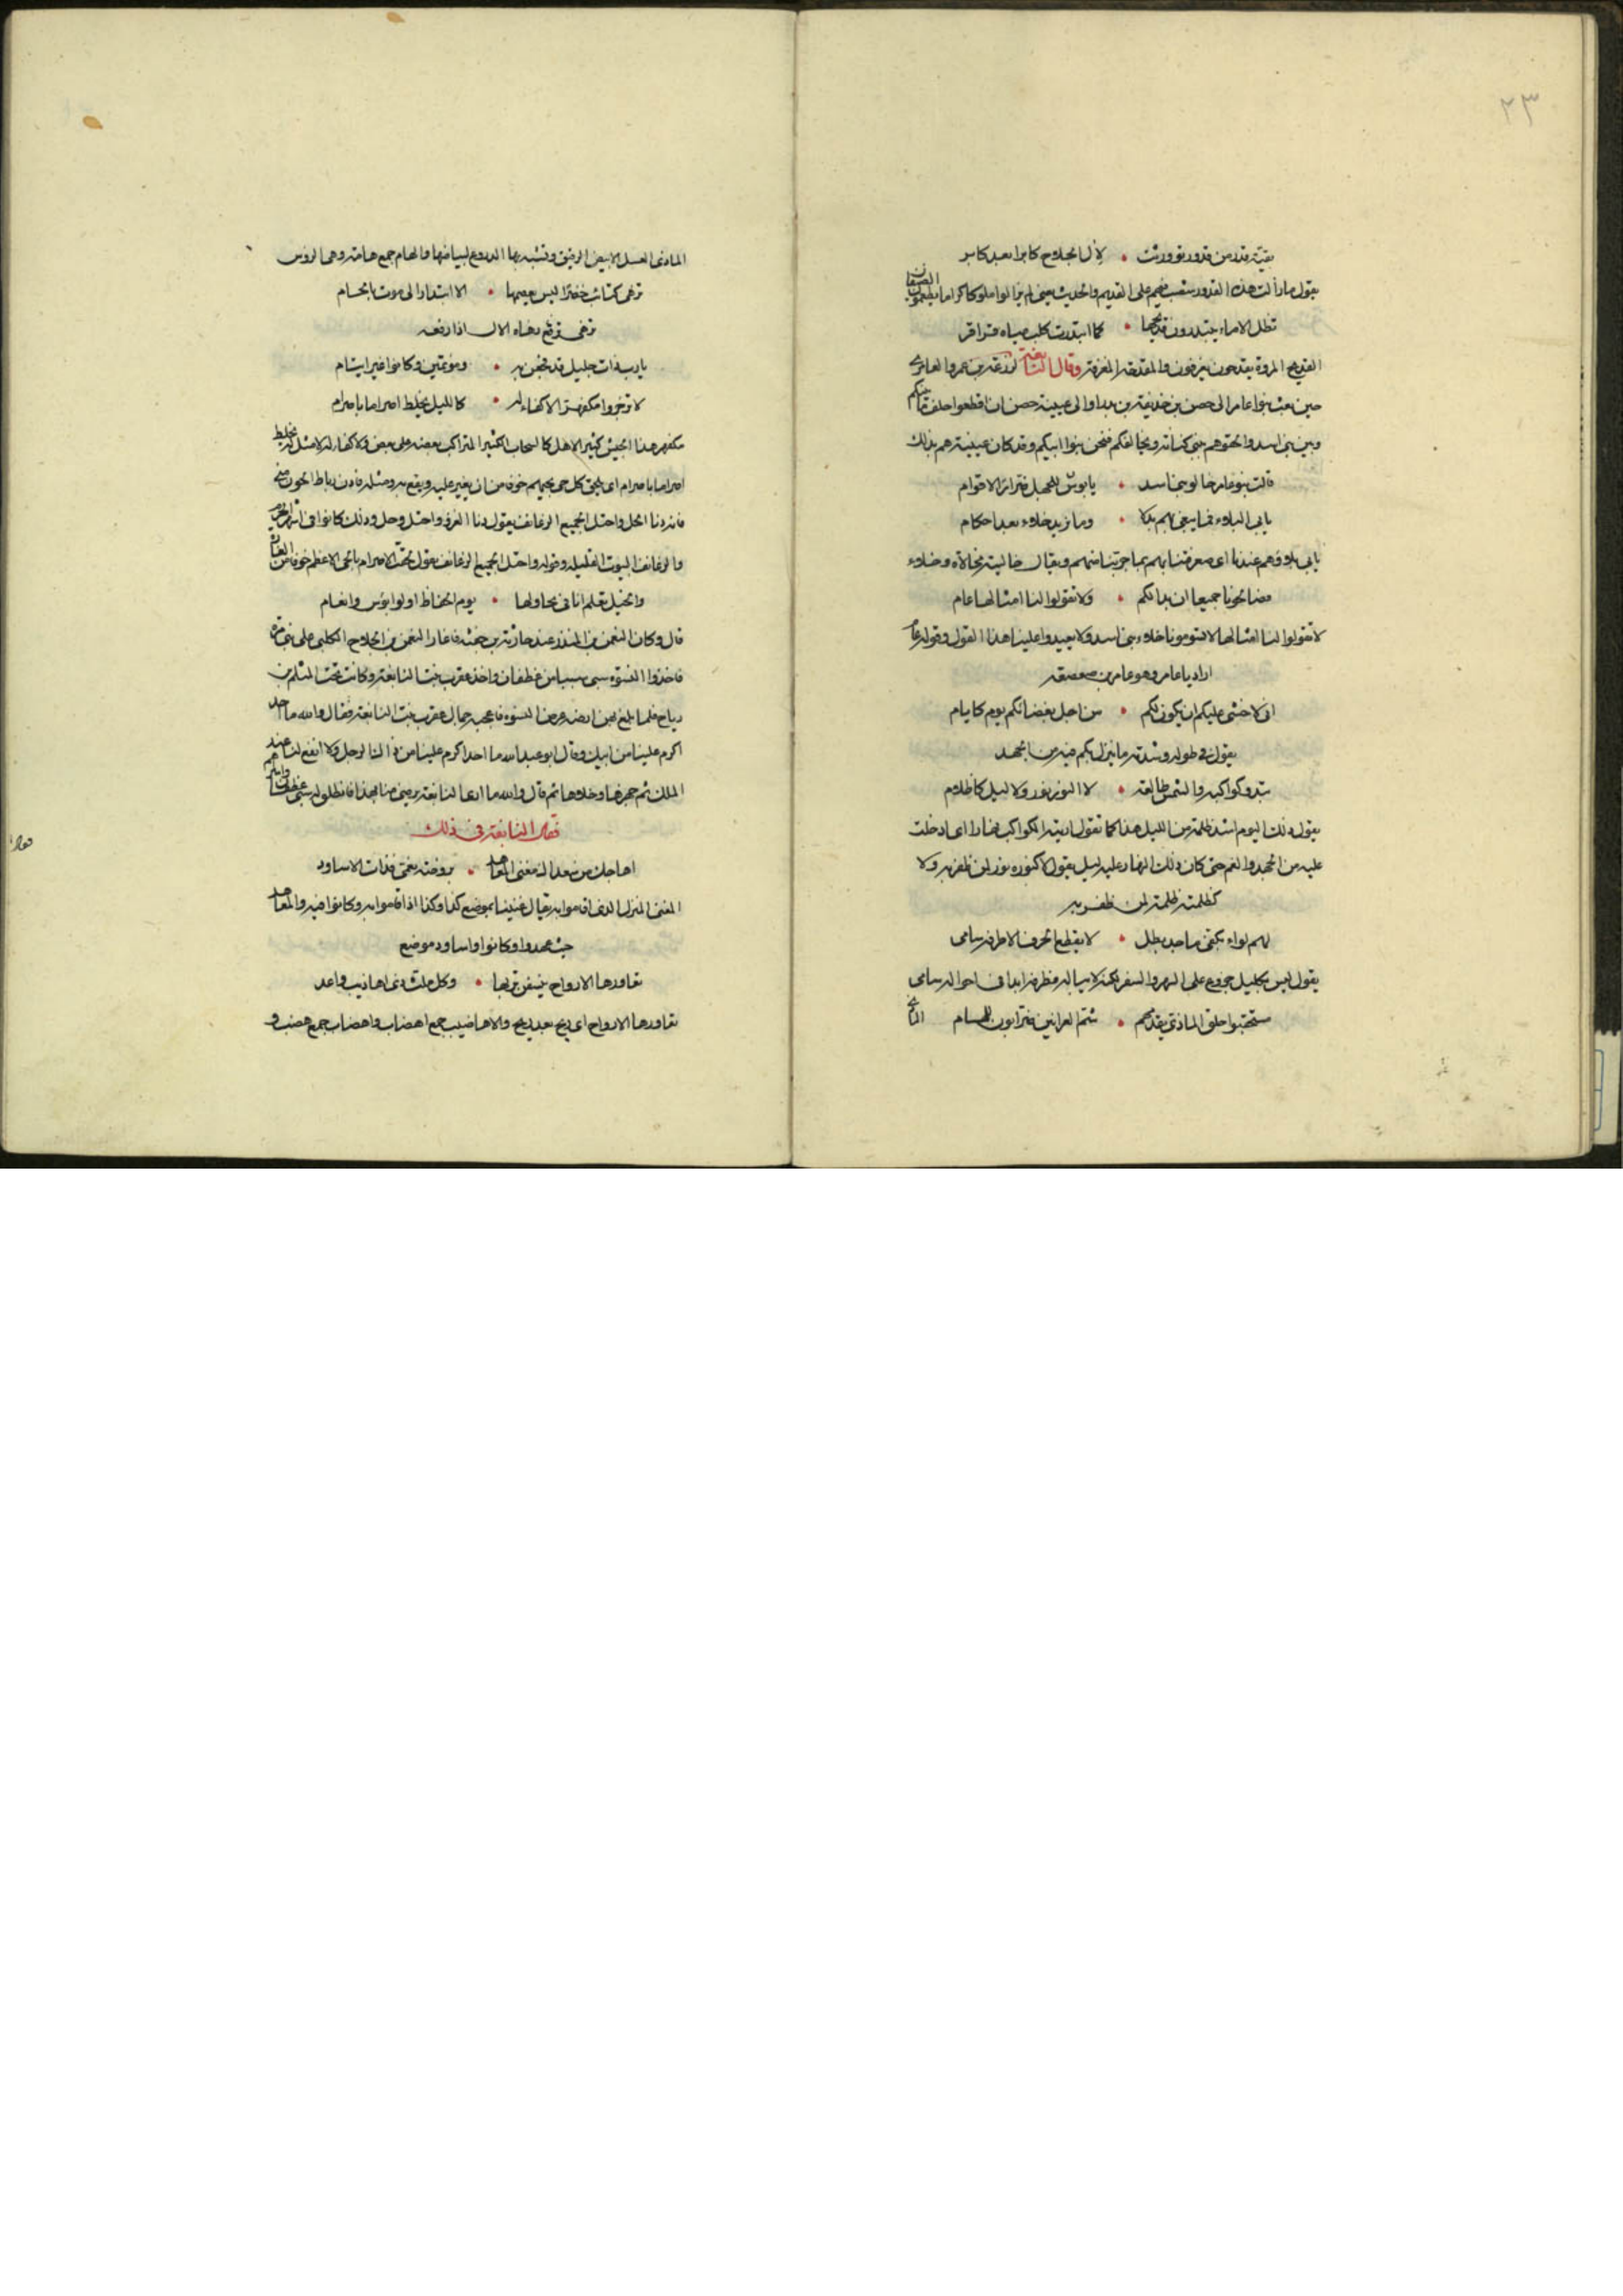 ٢٣
بقية قدر من قدور تورثت • لآل الجلاح كابرا بعد كابر
يقول ما زالت هذه القدور تنصب فيهم على القديم والحديث يعني لم يزالوا ملوكا كراما يطعمون
تظل الاماء يبتدرون قديحها • كما ابتدرت كلب مياه قراقر
القديح المروة يقدحون يغرفون والمقدحة المغرفة وقال النابغة لزرعة بن عمرو العامري
حين بعث بنوا عامر الى حصن بن حذيفة بن بدر او الى عيينة بن حصن ان اقطعوا حلف ما بينكم
وبين بني اسد والحقوهم ببني كنانة ونحالفكم فنحن بنوا ابيكم وقد كان عيينة هم بذلك
قالت بنو عامر خالو بني اسد • يا بوس للجهل ضرارا لاقوام
يابى البلاء فما يبغى بهم بدلا • وما نريد خلاء بعد احكام
يابى بلاوهم عندنا اي معرفتنا بهم بما جربنا منهم ويقال خاليته مخالاة وخلاء
فصالحونا جميعا ان بدا لكم • ولا تقولوا لنا امثالها عام
لا تقولوا لنا امثالها لا تسومونا خلاء بني اسد ولا يعيدوا علينا هذا القول وقوله عام
اراد يا عامر وهو عامر بن صعصعة
اني لاخشى عليكم ان يكون لكم • من اجل بغضائكم يوم كايام
يقول في طوله وشدته ما ينزل بكم فيه من الجهد
تبدو كواكبه والشمس طالعة • لا النور نور ولا ليل كاظلام
يقول ذلك اليوم اشد ظلمة من الليل هذا كما تقول اريته الكواكب نهارا اي ادخلت
عليه من الجهد والغم حتى كان ذلك النهار عليه ليل يقول لا كنوره نور لمن ظفر به ولا
كظلمته ظلمة لمن ظفر به
لهم لواء بكفي ماجد بطل • لا يقطع الخرق الا طرفه سامى
يقول ليس بكليل هو على السهر والسفر لكنه لا يبالي طرفه ابدا في احواله سامى
مستحقبوا حلق الماذي يقدمهم • شم العرانين ضرابون للهام
الماذي
الماذي العسل الابيض الرقيق وتشبه بها الدروع لبياضها والهام جمع هامة وهي الروس
تزهى كتائب خضرا ليس يعصمها • الا ابتدار الى موت بالجام
تزهى ترفع زهاه الآل اذا رفعه
يا رب ذات خليل قد فجعن به • وموتمين وكانوا غير ايتام
لا تزجروا مكفهرا لا كفاء له • كالليل يخلط اصراما باصرام
مكفهر هذا الجيش كثير الاهل كالسحاب الكثير المتراكب بعضه على بعض ولا كفاء له لا مثل له يخلط
اصراما باصرام اي يلحق كل حي بحيهم خوفا من ان يغير عليه ويقع به ومثله
والزعانف البيوت القليلة وقوله واحتل الجميع الزعانف يقول تحقت الاصرام بالحي الاعظم خوفا من الغارة
والخيل تعلم انا في تجاولها • يوم الحفاظ اولوا بؤس وانعام
قال وكان النعمن بن المنذر عند حارثة بن فاغار النعمن بن الجلاح الكلبي على بني مرة
فاخذوا النسوة سبي سبيا من غطفان واخذ عقرب بنت النابغة وكانت تحت المثلم بن
رياح فلما بلغ بهن ارضه عرض النسوة فاعجبه جمال عقرب بنت النابغة فقال والله ما احد
اكرم علينا من ابيك وقال ابو عبد الله ما احد اكرم علينا من ذا الرجل ولا انفع لنا عند
الملك ثم جهزها وخلاها ثم قال والله ما ارى النابغة يرضى منا بهذا فانطلق له سبي غطفان
فقال النابغة في ذلك
اهاجك من سعداك مغنى المعاهد • بروضة نعمى فذات الاساود
المغنى المنزل الذي اقاموا به يقال غنينا بموضع كذا وكذا اذا اقاموا به وكانوا فيه والمعاهد
حيث عهدوا وكانوا واساود موضع
تعاورها الارواح ينسفن تربها • وكل ملث ذي اهاضيب راعد
تعاورها الارواح اي ريح بعد ريح والاهاضيب جمع اهضاب واهضاب جمع هضب و